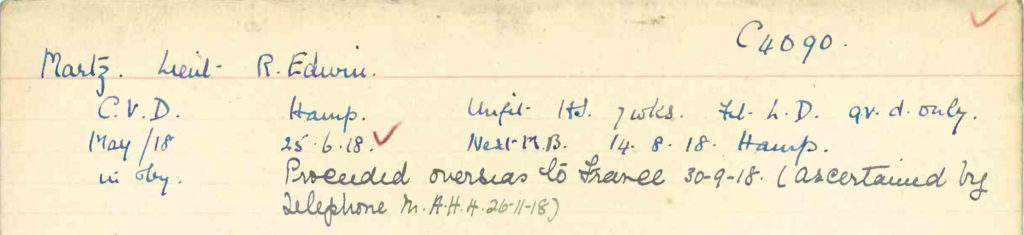 C4090.
Martz. Lieut- R. Edwin.
C.V.D. Hamp. Unfit- HS. 7 wks. Fit- L.D. gr. d. only.
May/18 25.6.18. Next M.B. 14. 8. 18. Hamp.
in
Proceeded overseas to France 30-9-18. (ascertained by
telephone M.A.H.H. 26-11-18)